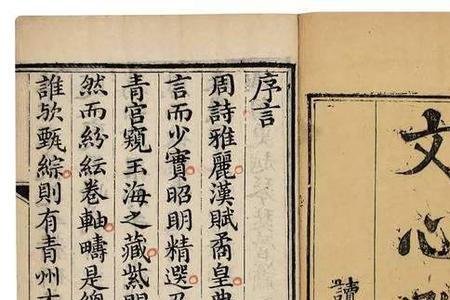 文心
讀
序言
周詩雅麗漢賦矞皇典
言而少實昭明精選
青宮窺玉海之藏紫
然而紛紜卷軸疇是總
誰歟甄綜則有青州